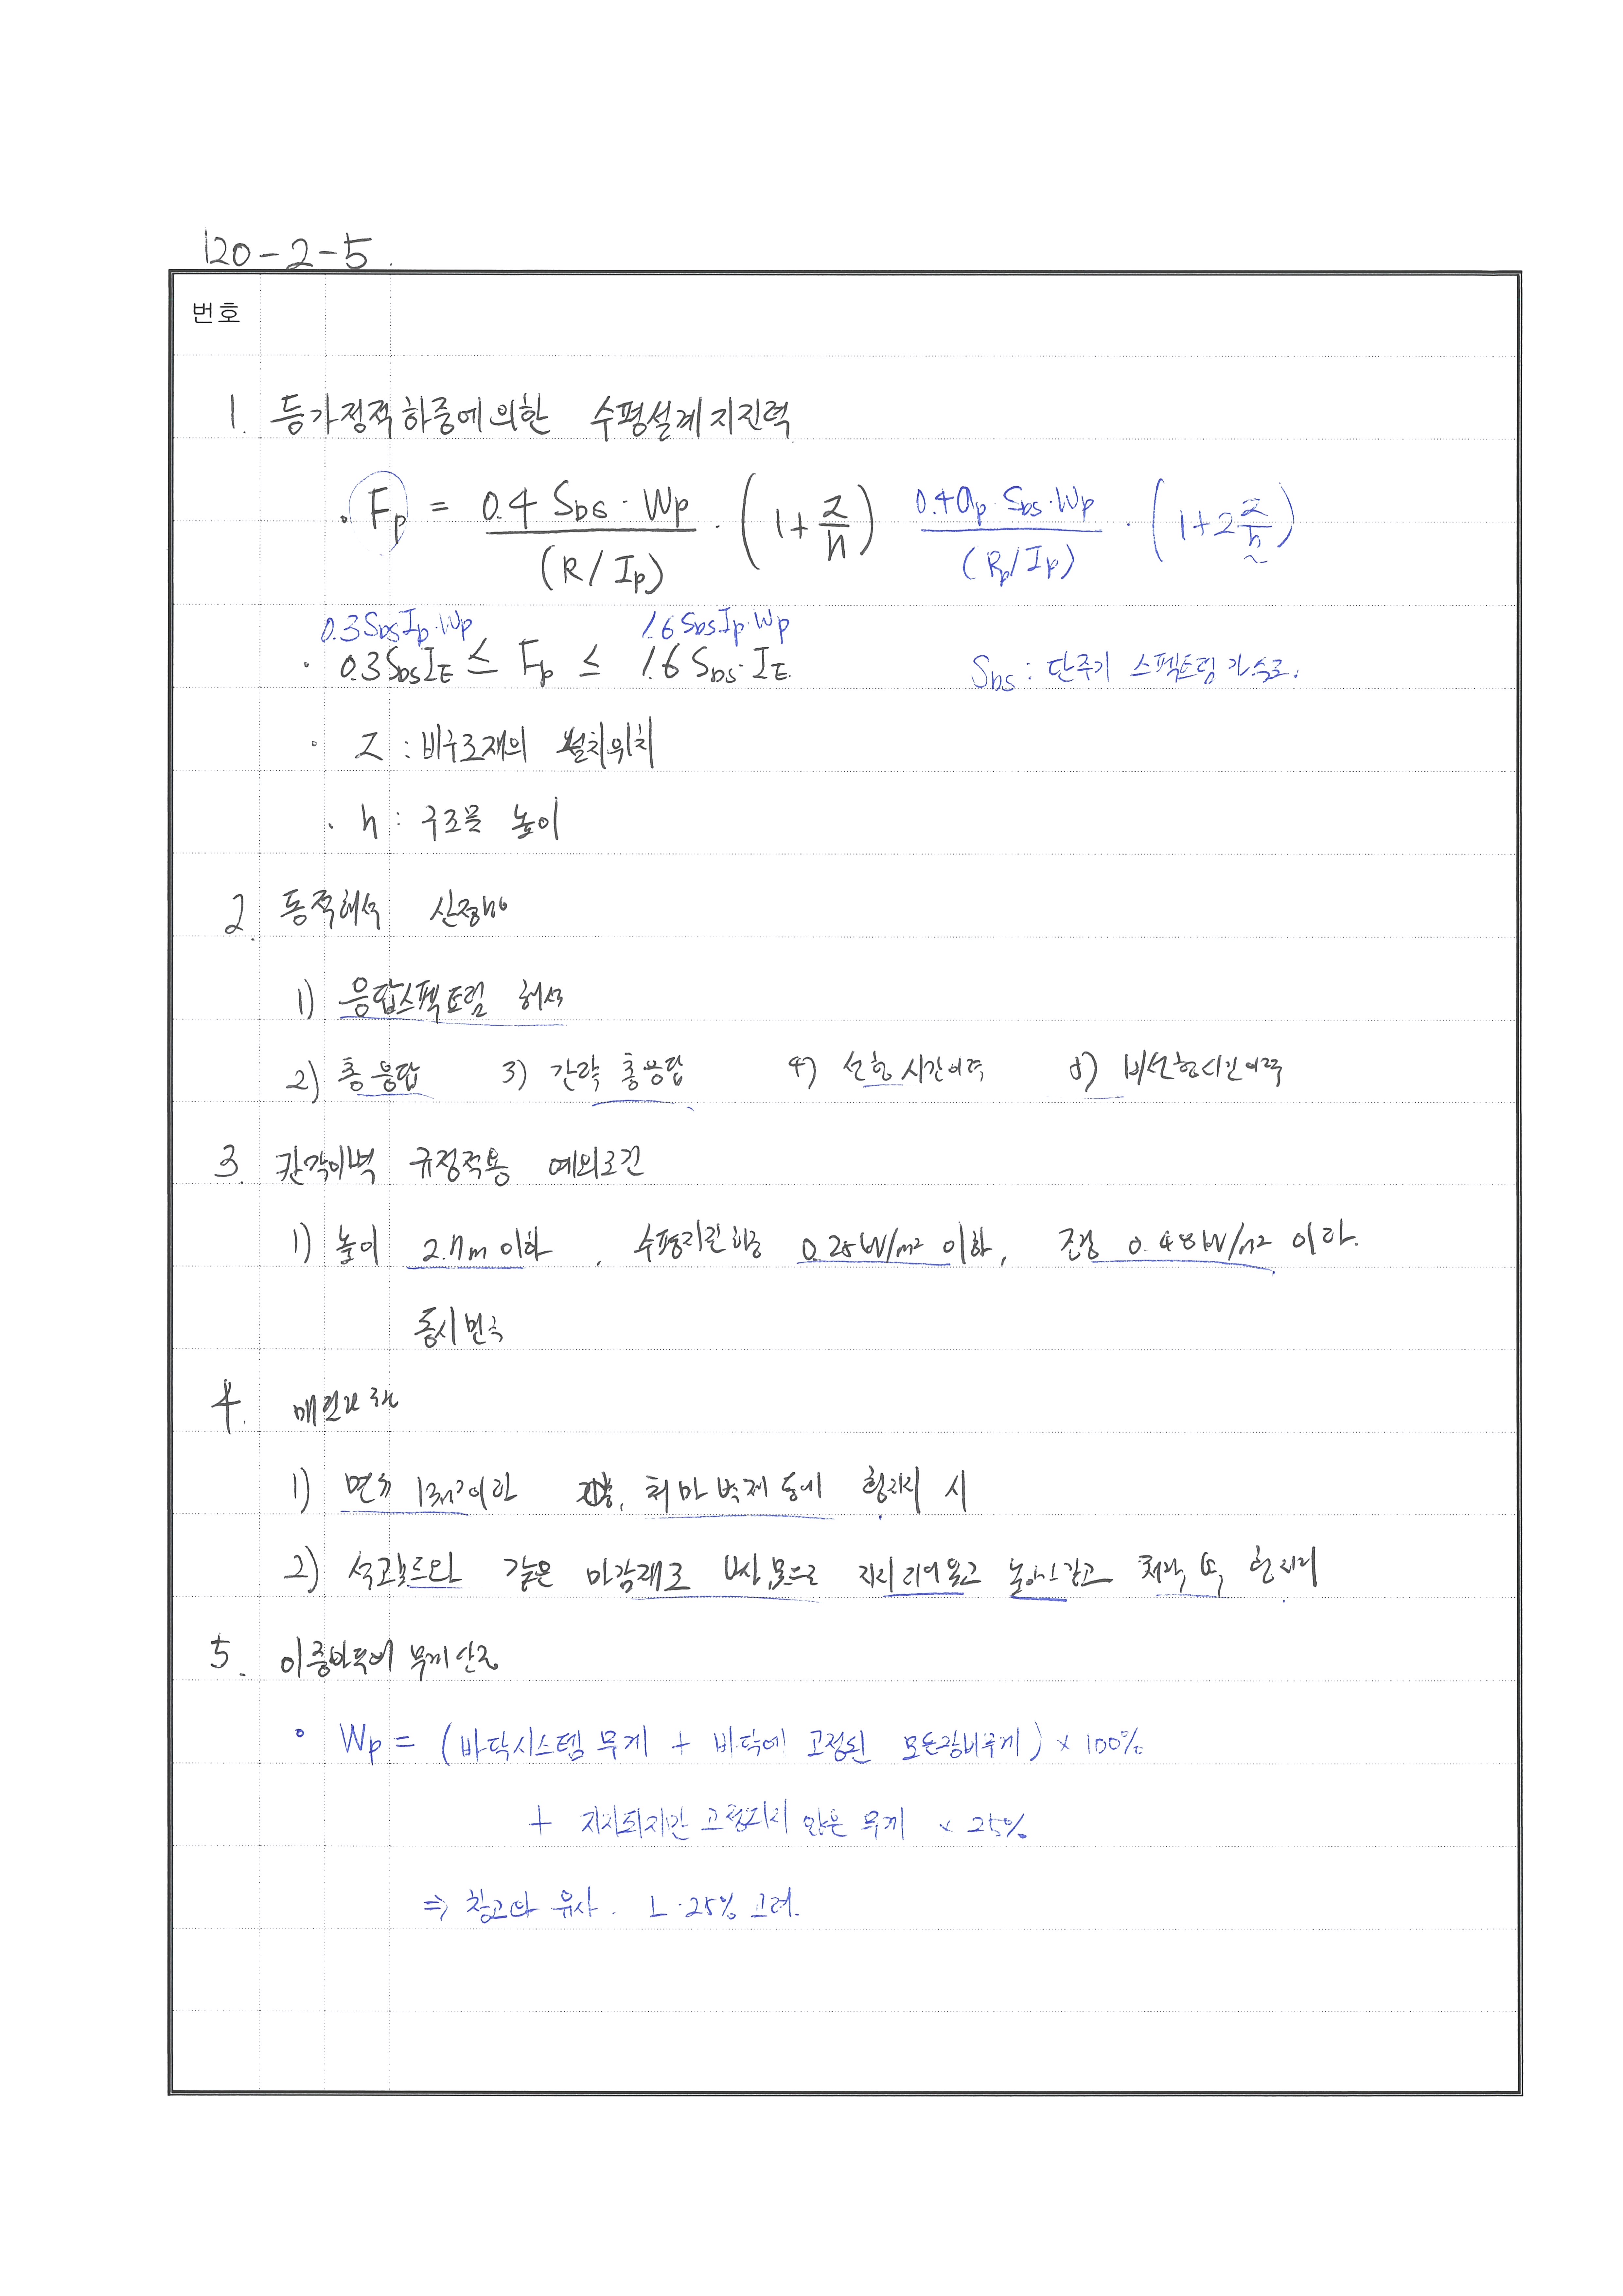 120-2-5.
번호
1. 등가정적하중에 의한 수평설계지진력
· Fp = 0.4 SDS · Wp / (R/Ip) · (1+z/h) 0.4ap · SDS · Wp / (Rp/Ip) · (1+2z/h)
0.3SDSIp·Wp 1.6SDSIp·Wp
· 0.3SDSIE ≤ Fp ≤ 1.6 SDS·IE. SDS : 단주기 스펙트럼 가속도.
· Z : 비구조재의 설치위치
· h : 구조물 높이
2. 동적해석 산정방법
1) 응답스펙트럼 해석
2) 층응답 3) 간략 층응답 4) 선형 시간이력 5) 비선형시간이력
3. 칸막이벽 규정적용 예외조건
1) 높이 2.7m 이하, 수평지진하중 0.25kN/m² 이하, 조장 0.48kN/m² 이하.
동시 만족
4.
1) 면적 13m² 이하 처마 벽체 등에 횡지지 시
2) 석고보드와 같은 마감재로 나사, 못으로 처짐 및 횡지지
5. 이중바닥에 무게산정
° Wp = (바닥시스템 무게 + 바닥에 고정된 모든장비무게) × 100%
+ 지지되지만 고정되지 않은 무게 × 25%
⇒ 창고와 유사. L·25% 고려.